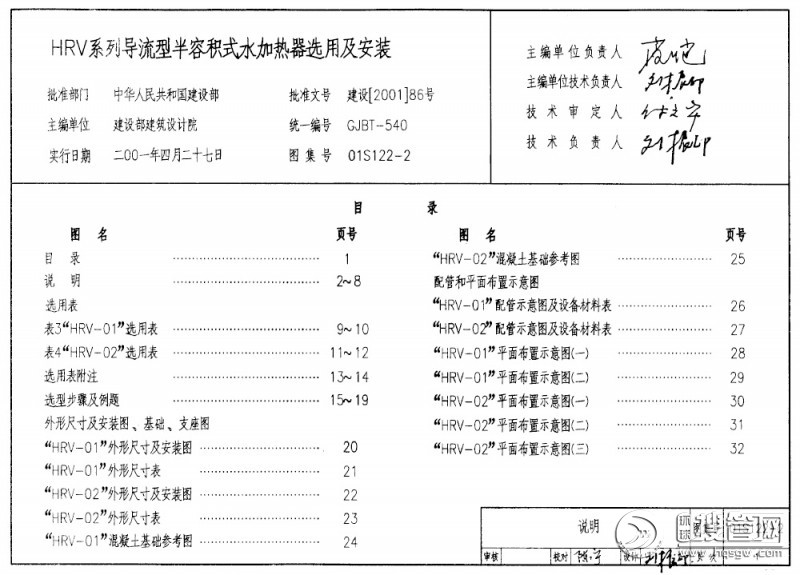 HRV系列导流型半容积式水加热器选用及安装
批准部门 中华人民共和国建设部 批准文号 建设[2001]86号
主编单位 建设部建筑设计院 统一编号 GJBT-540
实行日期 二00一年四月二十七日 图集号 01S122-2
主编单位负责人
主编单位技术负责人
技术审定人
技术负责人
目 录
图 名 页号
目 录 1
说 明 2~8
选用表
表3“HRV-01”选用表 9~10
表4“HRV-02”选用表 11~12
选用表附注 13~14
选型步骤及例题 15~19
外形尺寸及安装图、基础、支座图
“HRV-01”外形尺寸及安装图 20
“HRV-01”外形尺寸表 21
“HRV-02”外形尺寸及安装图 22
“HRV-02”外形尺寸表 23
“HRV-01”混凝土基础参考图 24
图 名 页号
“HRV-02”混凝土基础参考图 25
配管和平面布置示意图
“HRV-01”配管示意图及设备材料表 26
“HRV-02”配管示意图及设备材料表 27
“HRV-01”平面布置示意图(一) 28
“HRV-01”平面布置示意图(二) 29
“HRV-02”平面布置示意图(一) 30
“HRV-02”平面布置示意图(二) 31
“HRV-02”平面布置示意图(三) 32
说明
审核 校对 设计
环球搜管网
www.hqsgw.com